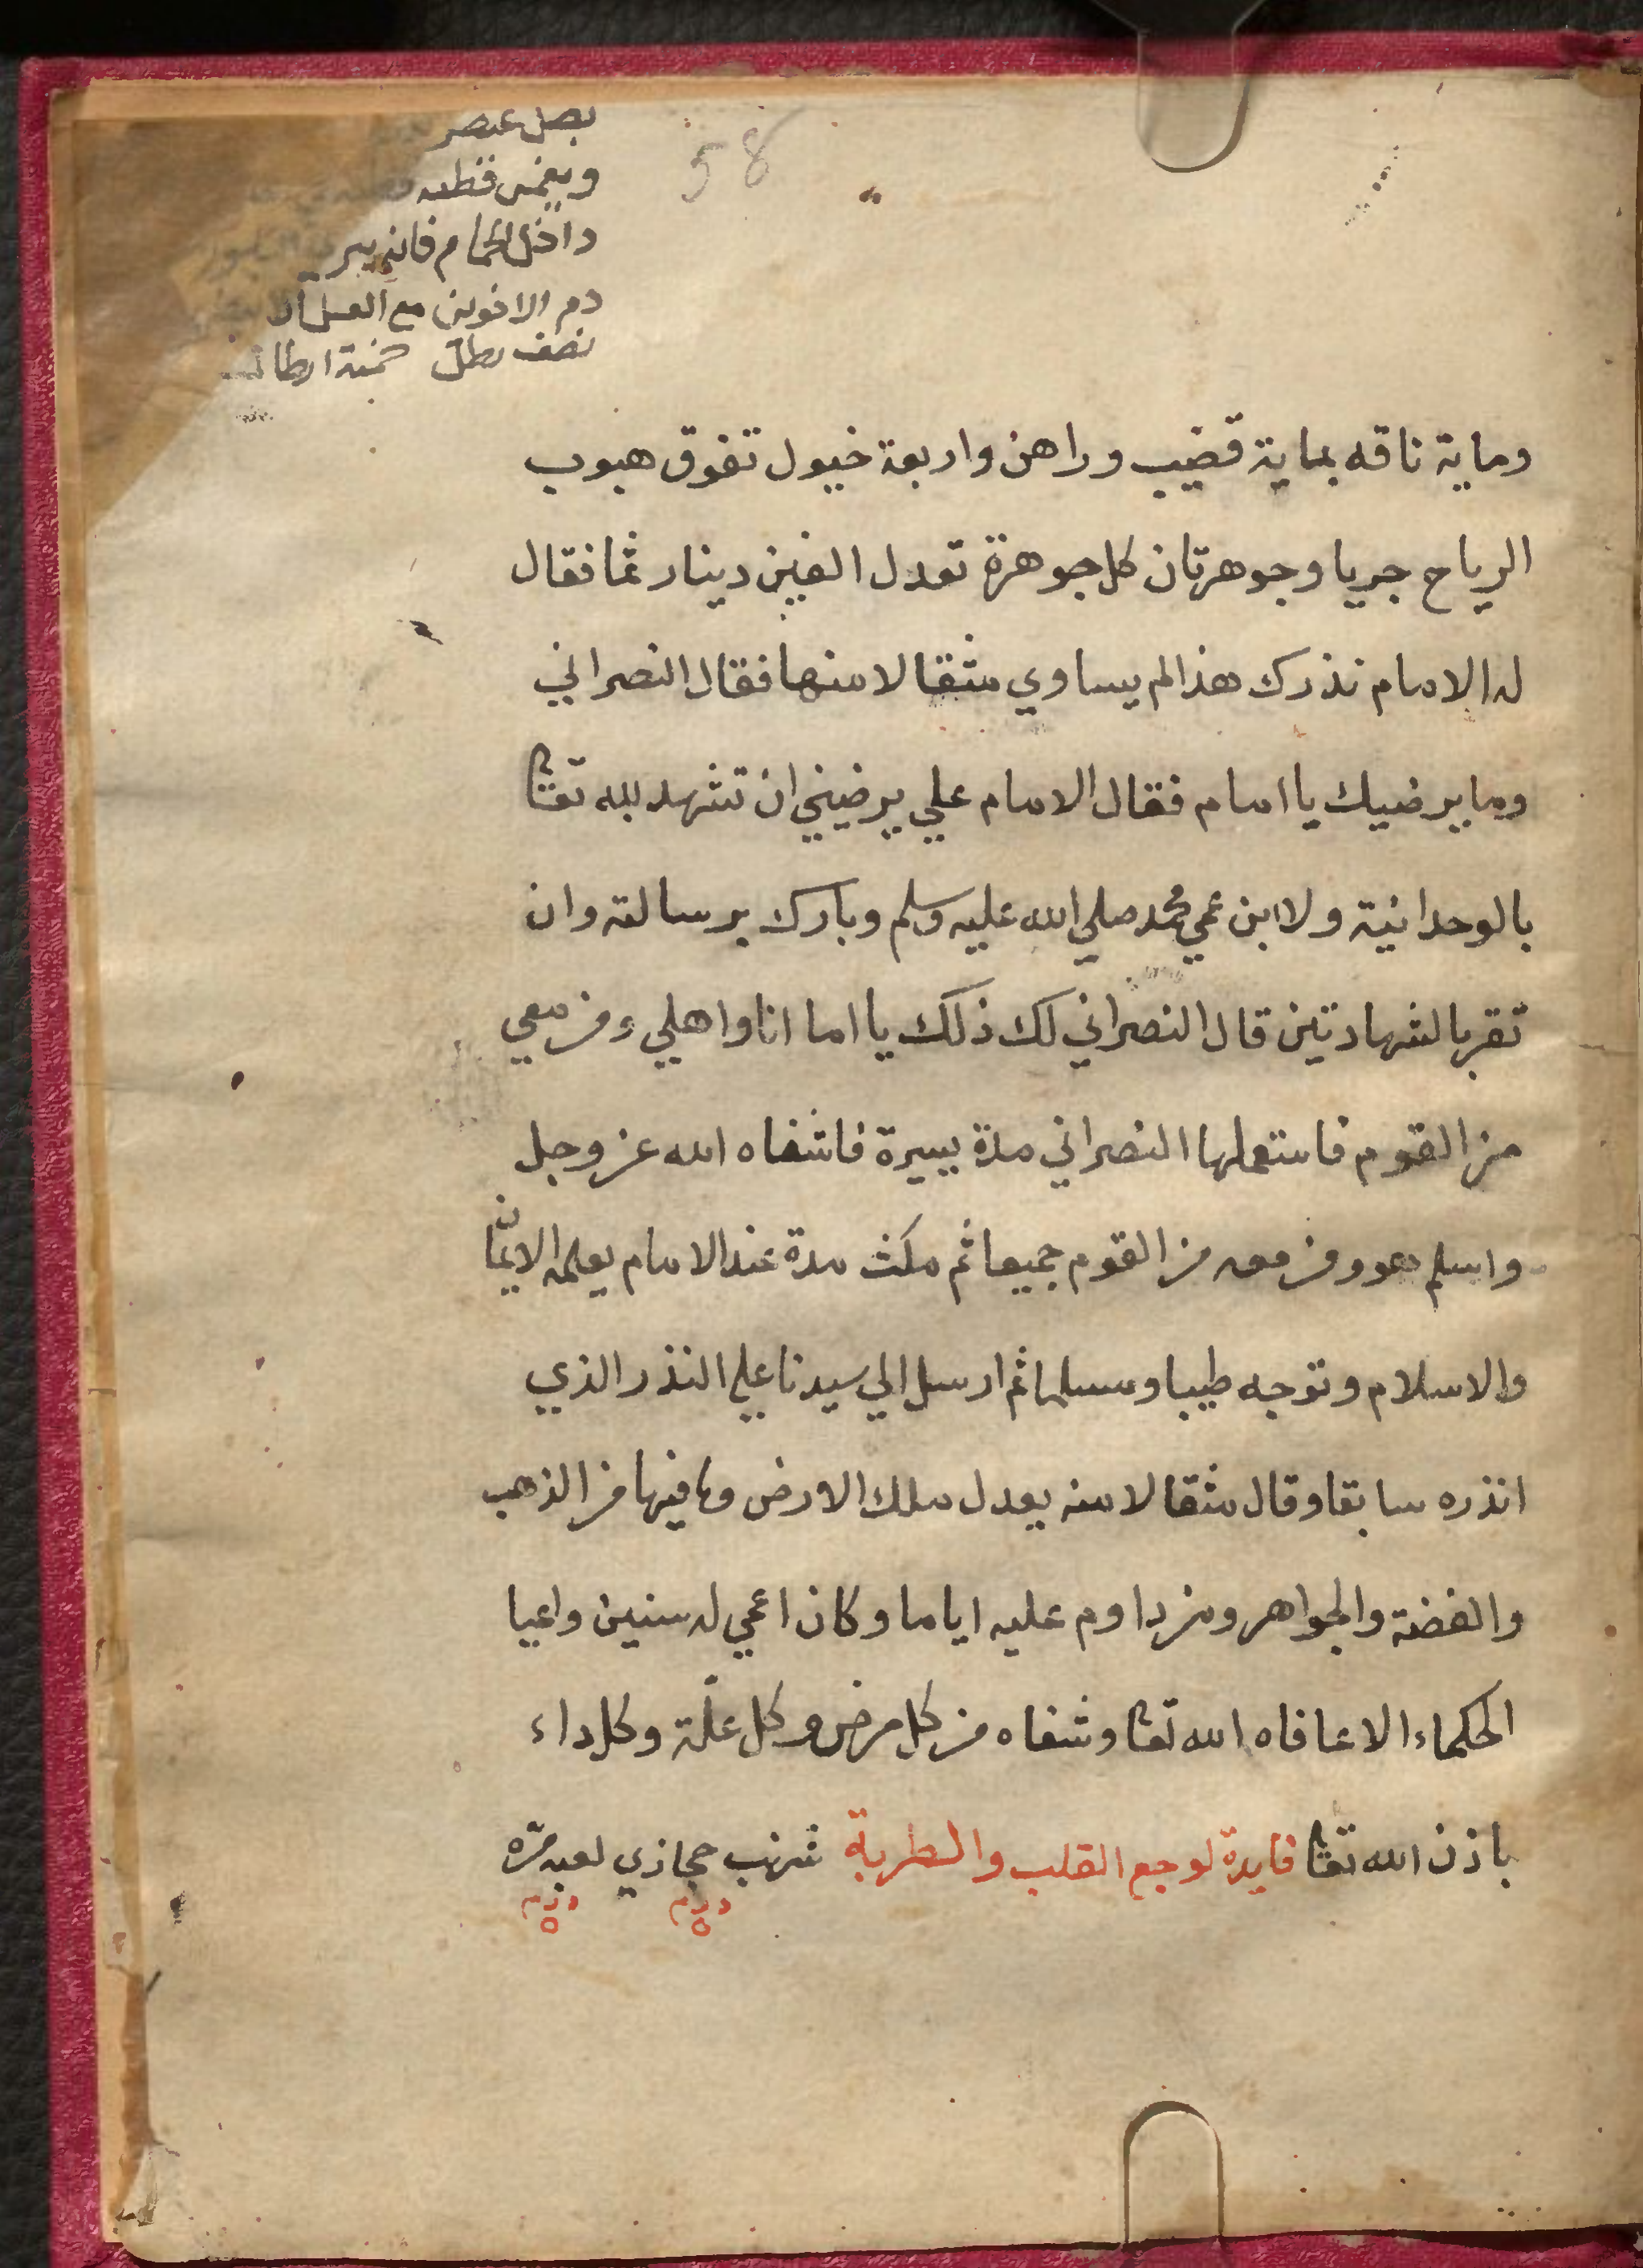 58
بصل عنصر
ويغمس قطنه
داخل الحمام فانه يبري
دم الاخوين مع العسل
نصف رطل خمسة ارطال
وماية ناقه بماية قضيب وراهن واربعة خيول تفوق هبوب
الرياح جريا وجوهرتان كل جوهرة تعدل الفين دينار ثمنا فقال
له الامام نذرك هذا لم يساوي مثقالا منها فقال النصراني
وما يرضيك يا امام فقال الامام علي يرضيني ان تشهد لله تعالى
بالوحدانية ولابن عمي محمد صلي الله عليه وسلم وبارك برسالته وان
تقر بالشهادتين قال النصراني لك ذلك يا اما انا واهلي ومن معي
من القوم فاستعملها النصراني مدة يسيرة فاشفاه الله عز وجل
واسلم هو ومن معه من القوم جميعا ثم مكث مدة عند الامام يعلمه الايمان
والاسلام وتوجه طيبا ومسلما ثم ارسل الي سيدنا علي النذر الذي
انذره سابقا وقال مثقالا منه يعدل ملك الارض وما فيها من الذهب
والفضة والجواهر ومن داوم عليه اياما وكان اعمي له سنين واعيا
الحكماء الا عافاه الله تعا وشفاه من كل مرض وكل علّة وكل داء
باذن الله تعالى فايدة لوجع القلب والطربة شرنب حجازي لعبة مرّه
درم ٥ درم ٥